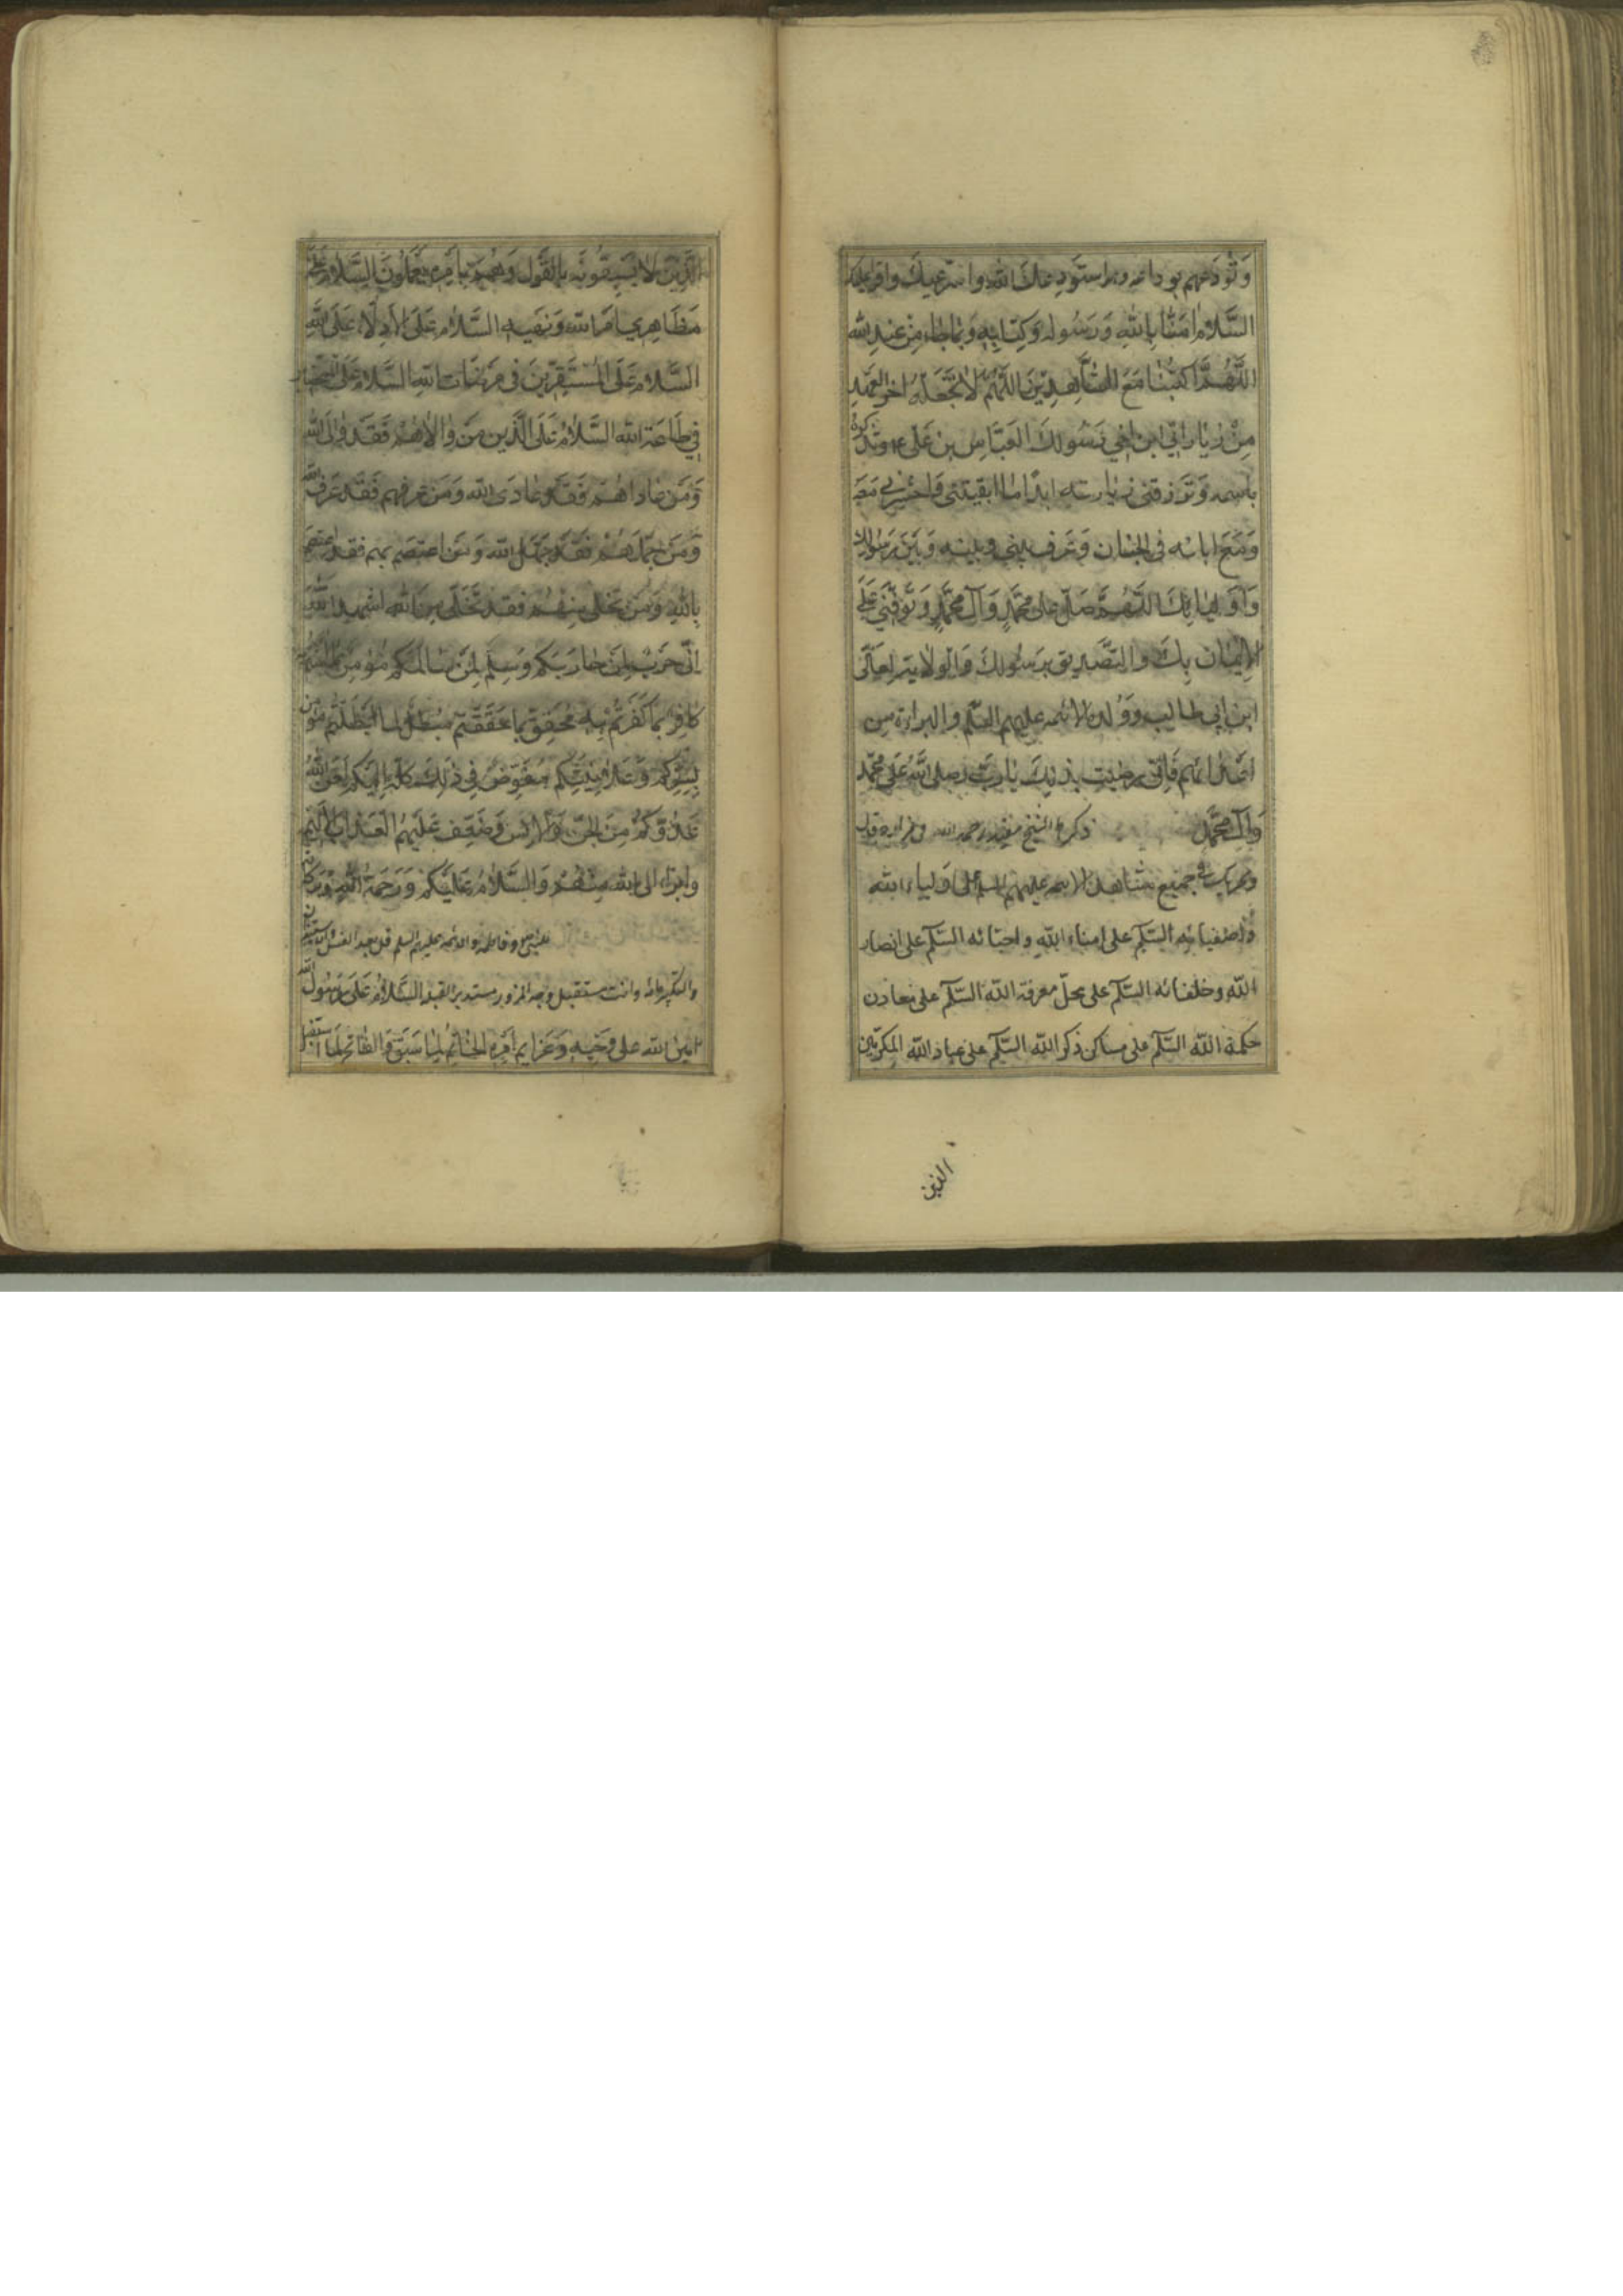 وَتُودّعهم بوداعه وهو استَودِعكَ الله واسترعيكَ واقرء عليك
السَّلامُ امَنَّا بِاللهِ وَرَسُولِه وَكِتَابِهِ وَبِمَا جَاءَ مِنْ عِنْدِ الله
اللَّهُمَّ اكتُبْنا مَعَ الشَّاهِدِيْنَ اللَّهُمَّ لا تَجْعَلْهُ اخرَ العَهْدِ
مِنْ زِيَارَتِي ابن اخي رَسُولِكَ العَبَّاسِ بنِ عَلى
وَتَرزقنى زيارته ابدًا ما ابقيتنى وَاحْشرنى مَعَه
وَمَعَ ابائه فى الجنان وَعَرف بينى وبينه وَبَيْنَ رَسُولِكَ
وَاَوليَائِكَ اللَّهُمَّ صَلِّ على محَمَّدٍ وَآلِ محَمَّدٍ وَتَوَفَّنِي عَلَى
الإيمَانِ بِكَ والتَّصديقِ بِرَسُولِكَ وَالولايَةِ لِعَلى
ابن ابي طالب وَوُلده الائمه عليهم السّلم والبراءة من
فَاِنّى رضيت بذلِكَ يَا رَبِّ وصلى اللهُ عَلى محمّد
وَآلِ مُحَمَّدٍ ذكره الشيخ مفيد رحمه الله
جميع مشاهد الائمه عليهم السلم السلم على اَولياء الله
وَاصفيائِهِ السَّلم على امناء اللهِ واحبائه السَّلم على انصار
اللهِ وخلفائه السَّلم على محلّ معرفة اللهِ السَّلم على معادن
حكمة الله السَّلم على مساكن ذكر الله السَّلم على عباد الله المكرمين
الذين
الَّذِيْنَ لاَ يَسْبِقُونَه بِالقَولِ وَهُمْ بِاَمْرِهِ يَعْمَلُونَ السَّلامُ عَلَى
مَظَاهِرِى اَمْرِ اللهِ وَنَهْيِهِ السَّلامُ عَلَى الاَدِلَّاءِ عَلَى اللهِ
السَّلامُ عَلَى المُسْتَقِرِّيْنَ فى مَرْضَاتِ اللهِ السَّلامُ عَلَى
فى طَاعَةِ الله السَّلامُ عَلَى الَّذِين مَن وَالاهُمْ فَقَد وَالَى الله
وَمَن عَادَاهُمْ فَقَدْ عَادَى الله وَمَن عَرفهم فَقَدْ عَرَفَ الله
وَمَن جَهَلَهُمْ فَقَدْ جَهَلَ الله وَمَن اعتَصَم بهم فقد اعتصم
بِاللهِ وَمَن تَخَلّى مِنهُمْ فقد تَخَلّى مِنَ الله اشهد اللهَ
اِنّى حَرْبٌ لِمَن حارَبَكم وَسِلْمٌ لِمَن سَالَمَكم مُؤمِنٌ بِمَا امنتم
كافِرٌ بِمَا كَفَرتُمْ بِهِ مُحَقِّقٌ لِما حَقَّقتم مُبْطِلٌ لِما اَبْطَلْتُم مُؤمن
بِسِرِّكم وَعَلانِيَتِكم مُفَوِّضٌ فى ذلِكَ كلّه اِليكم لَعَنَ اللهُ
عَدُوَّكُمْ مِنَ الجِنّ وَالاِنسِ وَضَعِّف عَلَيْهِمُ العَذابَ الاَليم
وابرَءُ الى اللهِ مِنْهُمْ وَالسَّلامُ عَلَيكم وَرَحمةُ اللهِ وَبَركاته
وفاطمه والائمه عليهم السلم قل بعد الغسل
والتكبير مائه وانت مستقبل وجه المزور مستدبر القبله السَّلامُ عَلَى رَسُول الله
امين الله على وَحيِه وَعَزايم اَمْرِه الخَاتم لِمَا سَبَقَ وَالفاتح لِمَا استقبل